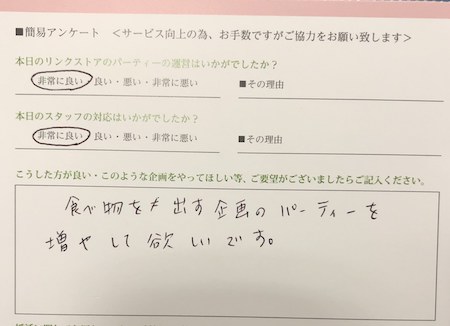 ■簡易アンケート ＜サービス向上の為、お手数ですがご協力をお願い致します＞
本日のリンクストアのパーティーの運営はいかがでしたか？
非常に良い・良い・悪い・非常に悪い ■その理由
本日のスタッフの対応はいかがでしたか？
非常に良い・良い・悪い・非常に悪い ■その理由
こうした方が良い・このような企画をやってほしい等、ご要望がございましたらご記入ください。
食べ物を出す企画のパーティーを
増やして欲しいです。